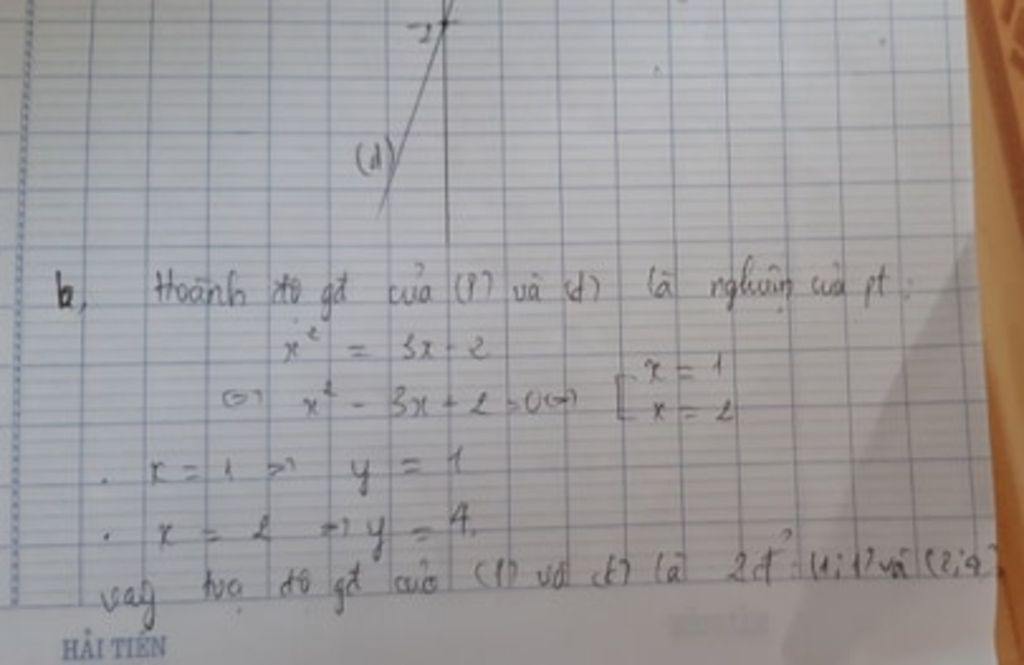 -2
(d)
b, Hoành độ gđ của (P) và (d) là nghiệm của pt:
x² = 3x - 2
<=> x² - 3x + 2 = 0 <=> [ x = 1
x = 2
. x = 1 => y = 1
. x = 2 => y = 4.
vậy tọa độ gđ của (P) và (d) là 2đ' (1;1) và (2;4)
HẢI TIẾN